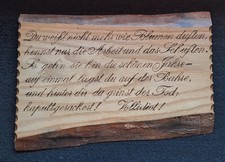 Du weißt nicht mehr wie Blumen duften,
kennst nur die Arbeit und das Schuften.
So gehn sie hin die schönen Jahre-
auf einmal liegst du auf der Bahre,
und hinter dir da grinst der Tod,
kaputtgerackert!